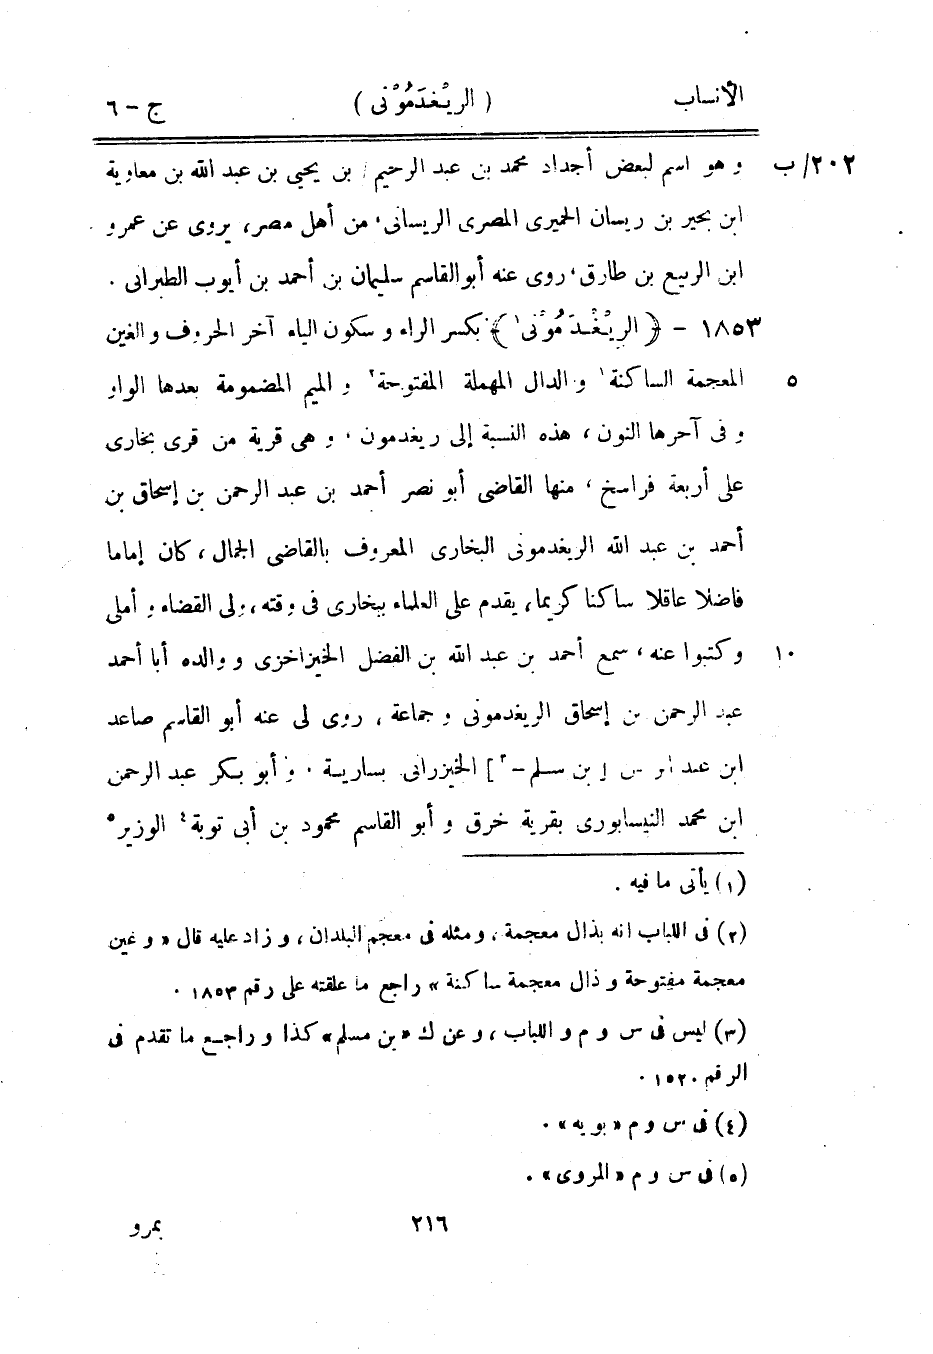 الأنساب ( الرِيْغدَمُوْنى ) ج - ٦
٢٠٢/ ب و هو اسم لبعض أجداد محمد بن عبد الرحيم / بن يحيى بن عبد الله بن معاوية
ابن بحير بن ريسان الحميرى المصرى الريسانى، من أهل مصر، يروى عن عمرو
ابن الربيع بن طارق، روى عنه أبو القاسم سليمان بن أحمد بن أيوب الطبرانى .
١٨٥٣ - ﴿ الرِيْغْدَمُوْنى ١ ﴾ بكسر الراء و سكون الياء آخر الحروف و الغين
٥ المعجمة الساكنة ١ و الدال المهملة المفتوحة ٢ و الميم المضمومة بعدها الواو
و فى آخرها النون، هذه النسبة إلى ريغدمون ، و هى قرية من قرى بخارى
على أربعة فراسخ، منها القاضى أبو نصر أحمد بن عبد الرحمن بن إسحاق بن
أحمد بن عبد الله الريغدمونى البخارى المعروف بالقاضى الجمال، كان إماما
فاضلا عاقلا ساكنا كريما، يقدم على العلماء ببخارى فى وقته، ولى القضاء و أملى
١٠ و كتبوا عنه، سمع أحمد بن عبد الله بن الفضل الخيزاخزى و والده أبا أحمد
عبد الرحمن بن إسحاق الريغدمونى و جماعة، روى لى عنه أبو القاسم صاعد
ابن عبد [ بن سلم - ٣ ] الخيزرانى بسارية ، و أبو بكر عبد الرحمن
ابن محمد النيسابورى بقرية خرق و أبو القاسم محمود بن أبى توبة ٤ الوزير ٥
(١) يأتى ما فيه .
(٢) فى اللباب انه بذال معجمة، و مثله فى معجم البلدان، و زاد عليه قال « و غين
معجمة مفتوحة و ذال معجمة ساكنة » راجع ما علقته على رقم ١٨٥٣ .
(٣) ليس فى س و م و اللباب، و عن ك « بن مسلم » كذا و راجع ما تقدم فى
الرقم ١٥٢٠ .
(٤) فى س و م « بويه » .
(٥) فى س و م « المروى » .
٢١٦ بمرو